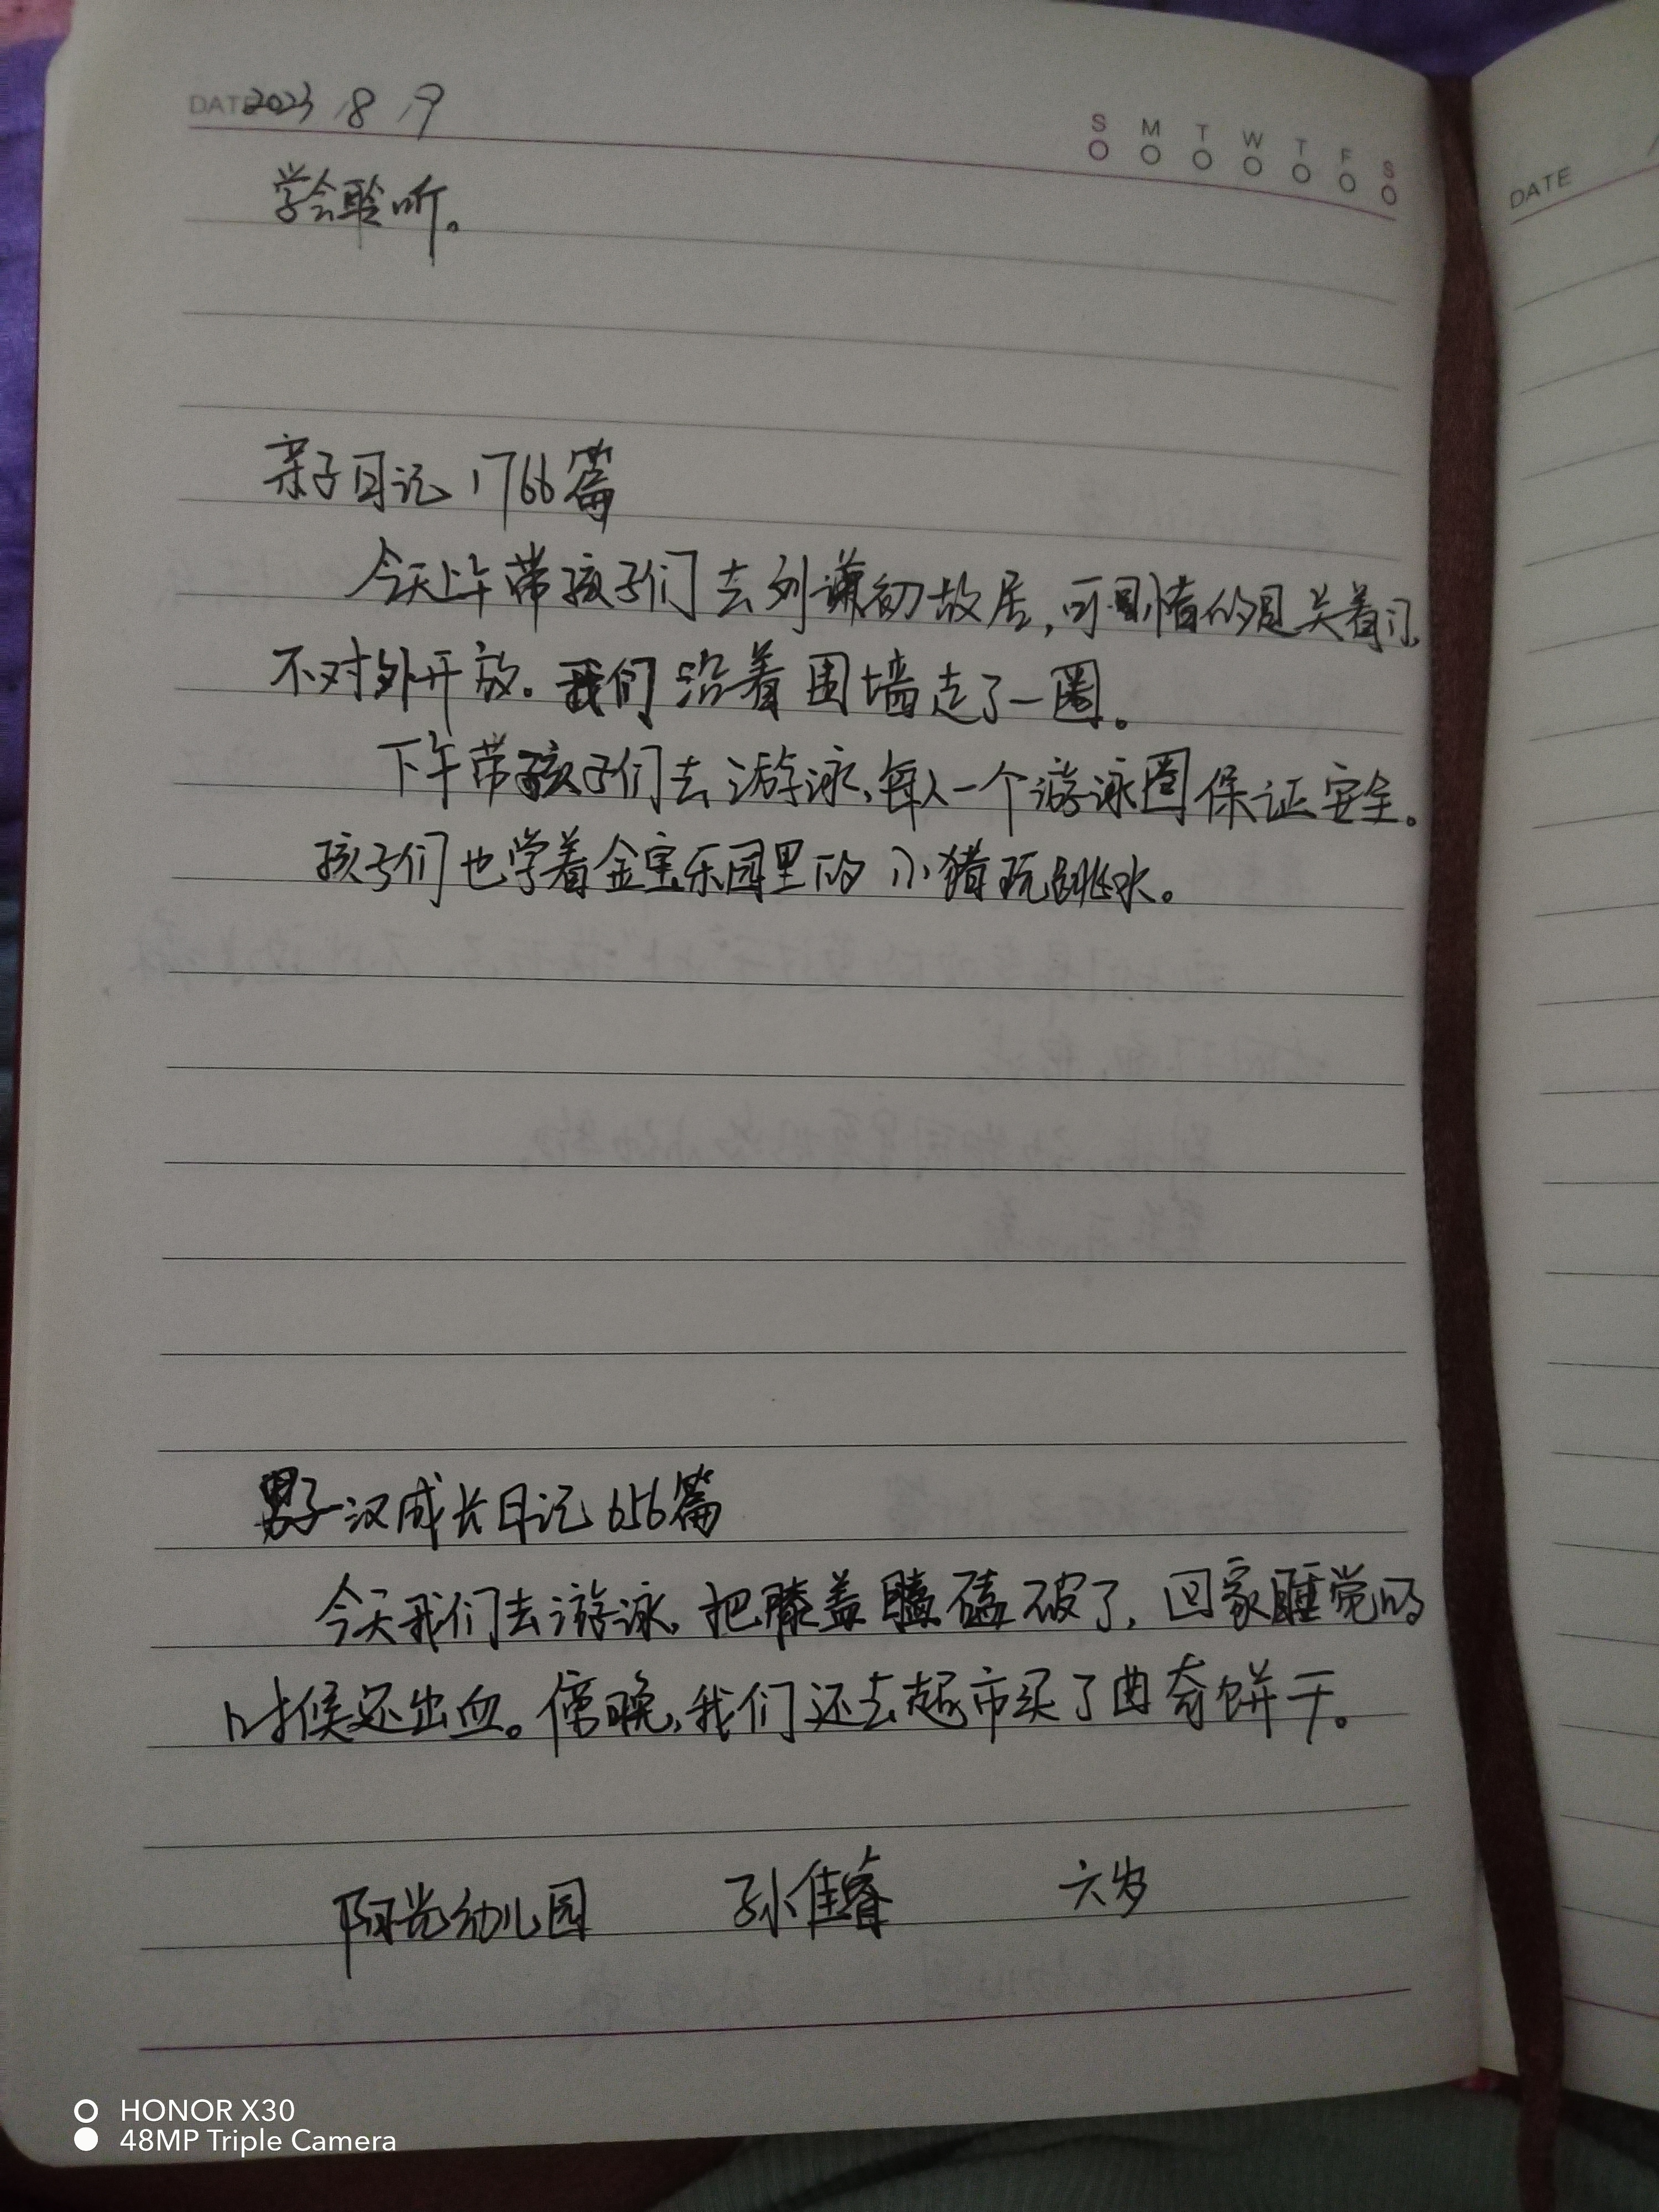 DATE 2023 / 8 / 9
S M T W T F S
学会聆听。
亲子日记1766篇
今天上午带孩子们去刘谦初故居,可惜的是关着门
不对外开放。我们沿着围墙走了一圈。
下午带孩子们去游泳,每人一个游泳圈保证安全。
孩子们也学着金宝乐园里的小猪玩跳水。
男子汉成长日记656篇
今天我们去游泳,把膝盖磕破了,回家睡觉的
时候还出血。傍晚,我们还去超市买了曲奇饼干。
阳光幼儿园 孙佳睿 六岁
DATE
HONOR X30
48MP Triple Camera